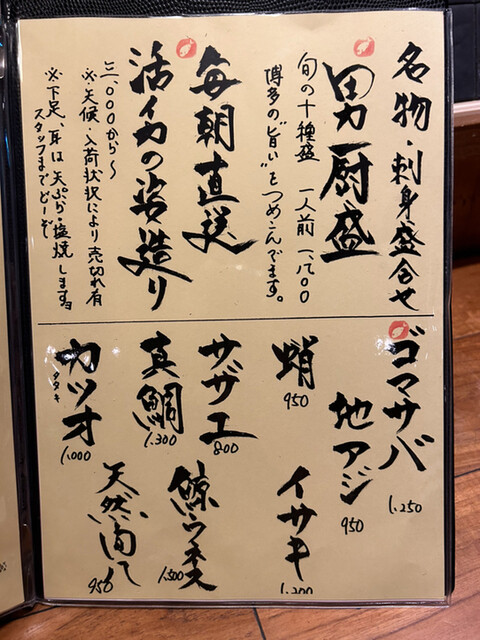 名物・刺身盛合せ
男厨盛
旬の十種盛 一人前 一、七〇〇
博多の"旨い"をつめこんでます。
毎朝直送
活イカの姿造り
三、〇〇〇から〜
※天候・入荷状況により売切れ有
※下足、耳は天ぷら・塩焼します。
スタッフまでどーぞ
ゴマサバ
1,250
地アジ
950
蛸
950
イサキ
1,200
サザエ
800
真鯛
1,300
鯨ウネス
1,500
カツオ
タタキ
1,000
天然
950